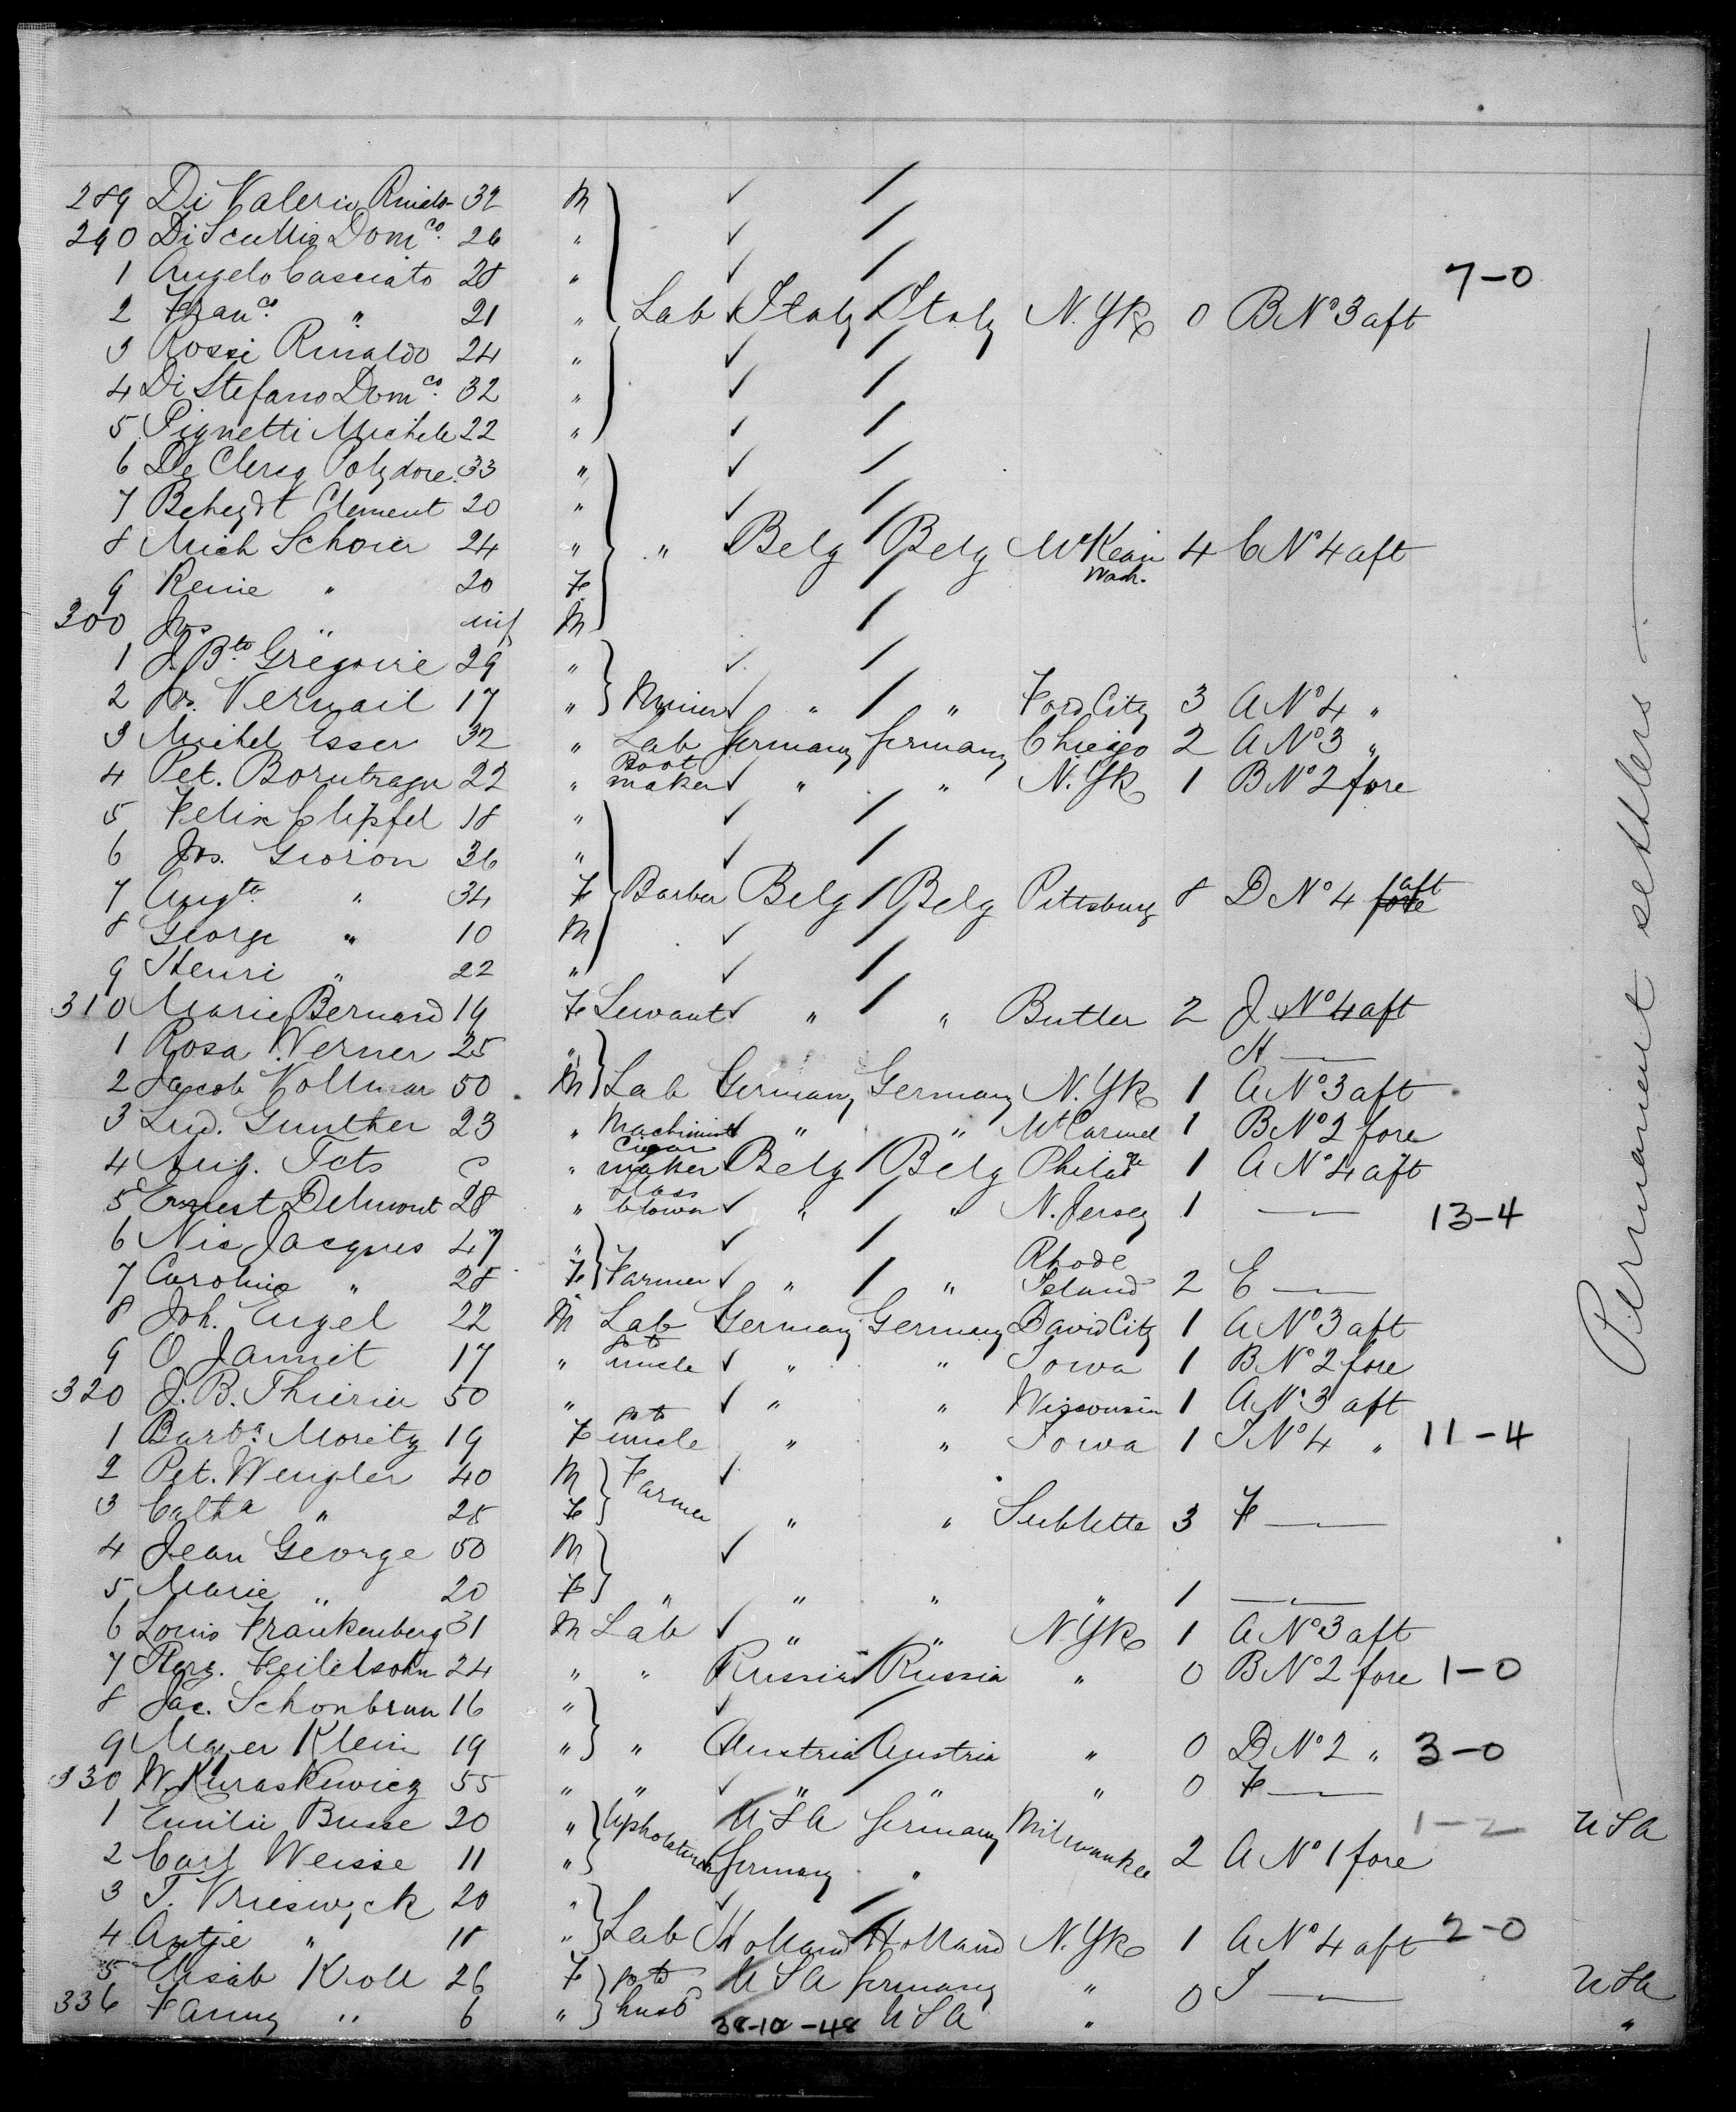 289 Di Valerio Rinaldo 32 M
290 Di Scullio Dom co. 26 "
1 Angelo Casciato 28 "
7-0
2 Franco. " 21 " Lab Italy Italy N.Yk 0 B No 3 aft
3 Rossi Rinaldo 24 "
4 Di Stefano Dom co. 32 "
5 Pignetti Michele 22 "
6 De Clercq Polydore 33 "
7 Beheydt Clement 20 "
8 Mich Schoier 24 " " Belg Belg McKean Wash. 4 C No 4 aft
9 Reine " 20 F
300 Jos " inf M
1 J. Bte Gregoire 29 "
2 Jos. Vermail 17 " Miner " " Ford City 3 A No 4 "
3 Michel Esser 32 " Lab Germany Germany Chicago 2 A No 3 "
4 Pet. Borutrager 22 " Boot maker " " N.Yk 1 B No 2 fore
5 Felix Clipfel 18 "
6 Jos. Gioron 36 "
7 Augta " 34 F Barber Belg Belg Pittsburg 8 D No 4 fore aft
8 George " 10 M
9 Henri " 22 "
310 Marie Bernard 19 F Servant " " Butler 2 J No 4 aft
1 Rosa Werner 25 " H —
2 Jacob Vollmar 50 M Lab Germany Germany N.Yk 1 A No 3 aft
3 Lud. Gunther 23 " Machinist " " Mt Carmel 1 B No 2 fore
4 Aug. Tets " Cigar maker Belg Belg Philada 1 A No 4 aft
5 Ernest Delmont 28 " Glass blower " " N. Jersey 1 —
13-4
6 Nic Jacques 47 "
7 Caroline " 28 F Farmer " " Rhode Island 2 E —
8 Joh. Engel 22 M Lab Germany Germany David City 1 A No 3 aft
9 O Jannit 17 " to uncle " " Iowa 1 B No 2 fore
320 J. B. Thierier 50 " " " Wisconsin 1 A No 3 aft
1 Barba Moritz 19 F to uncle " " Iowa 1 J No 4 " 11-4
2 Pet. Wengler 40 M Farmer
3 Catha " 28 F " " Sublette 3 F —
4 Jean George 50 M
5 Marie " 20 F " " " " 1 —
6 Louis Frankenberg 31 M Lab " " N.Yk 1 A No 3 aft
7 Herz. Feilelsohn 24 " " Russia Russia " 0 B No 2 fore 1-0
8 Jac. Schonbrun 16 "
9 Mayer Klein 19 " " Austria Austria " 0 D No 2 " 3-0
330 W. Kuraskewicz 55 " " " " " 0 F —
1 Emilie Busse 20 " Upholsterer USA Germany Milwaukee 1-2 USA
2 Carl Weisse 11 " Germany " 2 A No 1 fore
3 T. Vrieswyck 20 "
4 Antje " 18 " Lab Holland Holland N.Yk 1 A No 4 aft 2-0
5 Elisab Kroll 26 F to husb USA Germany " 0 J — USA
336 Fanny " 6 " USA " "
38-10-48
— Permanent settlers —